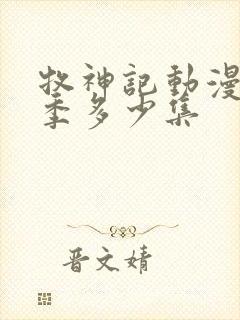 牧神記動漫
季多少集
晋文婧